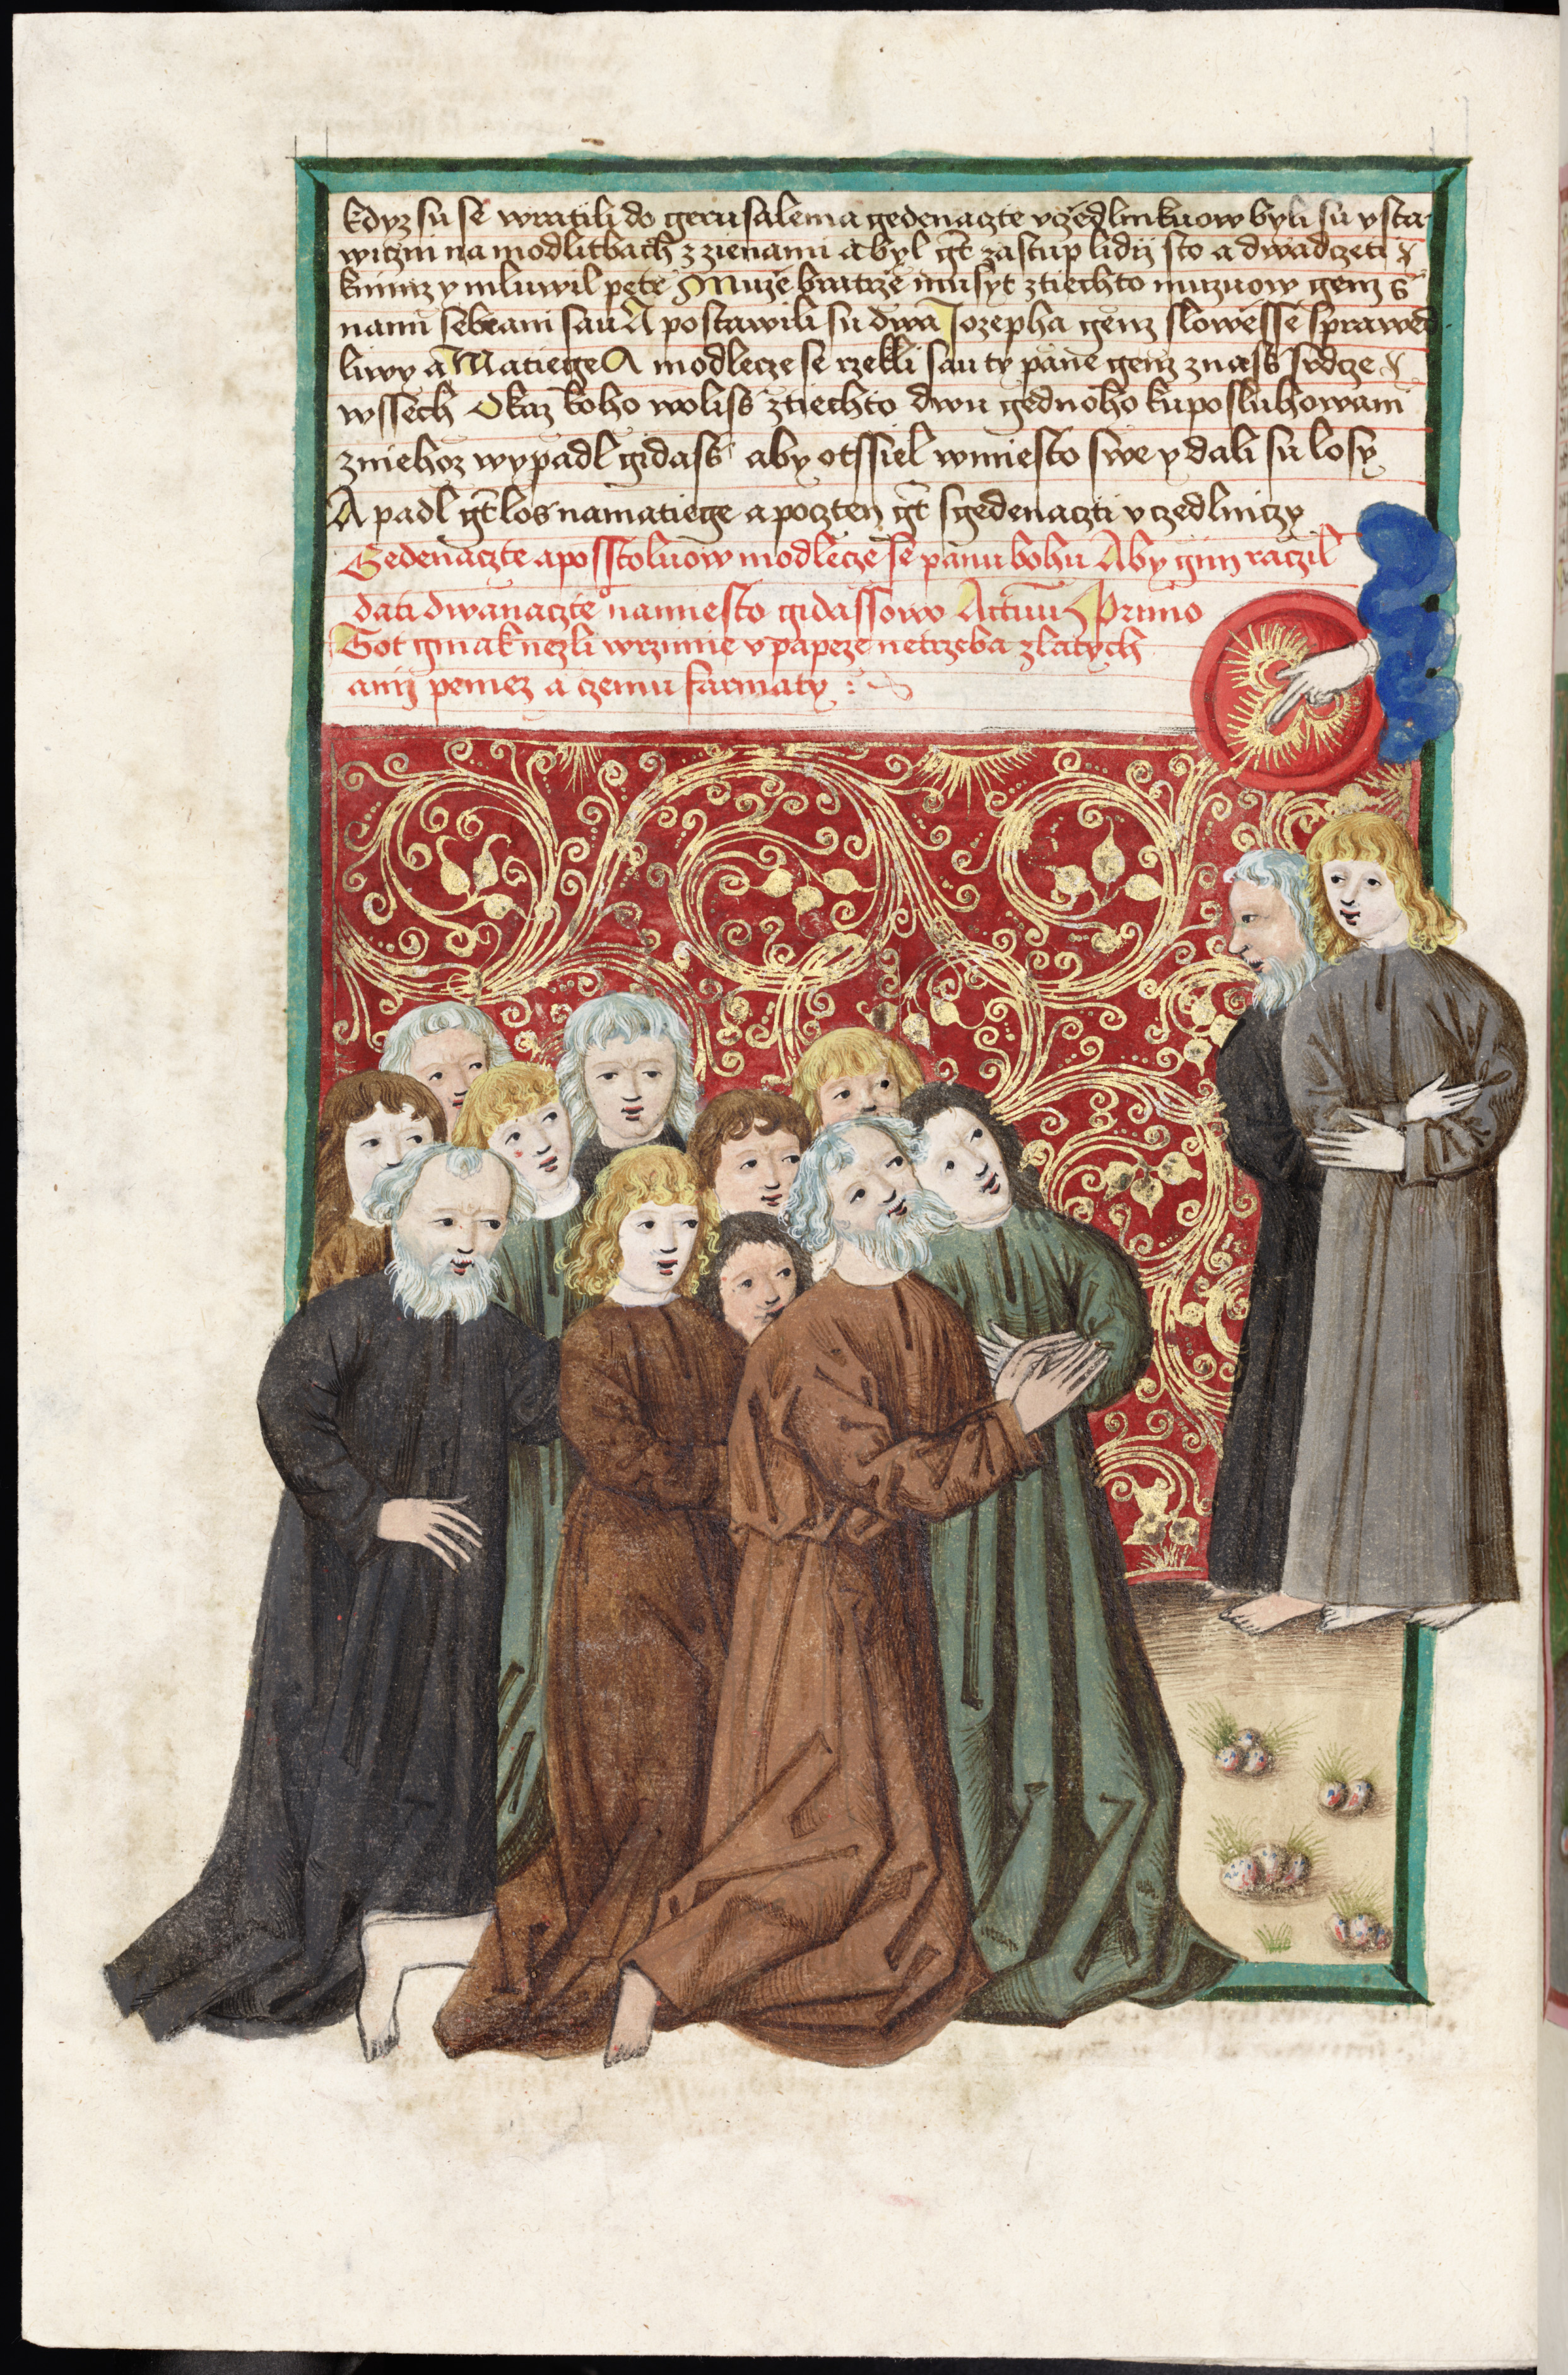 kdyz su se wratili do gerusalema gedenaczte vczedlnikuow byli su vsta
wiczni na modlitbach z zienami a byl gt zastup lidij sto a dwadczeti
knimz y mluwil petr Muzie bratrzie musyt ztiechto muzuow genz s
nami sebrani sau A postawili su dwa Jozepha genz slowesse sprawed
liwy a Matiege A modlecze se rzekli sau ty pane genz znass srdcze
wssech Okaz koho woliss ztiechto dwu gednoho kuposluhowani
zniehoz wypadl gidass aby otssiel wmiesto swe y dali su losy
A padl gt los namatiege a poczten gt sgedenaczti vczedlniczy
Gedenaczte aposstoluow modlecze se panu bohu Aby gim raczil
dati dwanaczteho namiesto gidassowo Actuum Primo
Tot ginak nezli wrzimie v papeze netrzeba zlatych
anij peniez a czemu farmaty